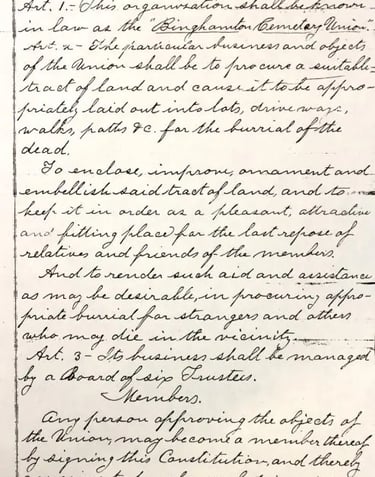 Art. 1. - This organization shall be known
in law as the "Binghamton Cemetery Union".
Art. 2 - The particular business and objects
of the Union shall be to procure a suitable
tract of land and cause it to be appro-
priately laid out into lots, drive ways,
walks, paths &c. for the burrial of the
dead.
To enclose, improve, ornament and
embellish said tract of land, and to
keep it in order as a pleasant, attractive
and fitting place for the last repose of
relatives and friends of the members.
And to render such aid and assistance
as may be desirable, in procuring appro-
priate burial for strangers and others
who may die in the vicinity.
Art. 3 - Its business shall be managed
by a Board of six Trustees.
Members.
Any person approving the objects of
the Union, may become a member thereof
by signing this Constitution, and thereby